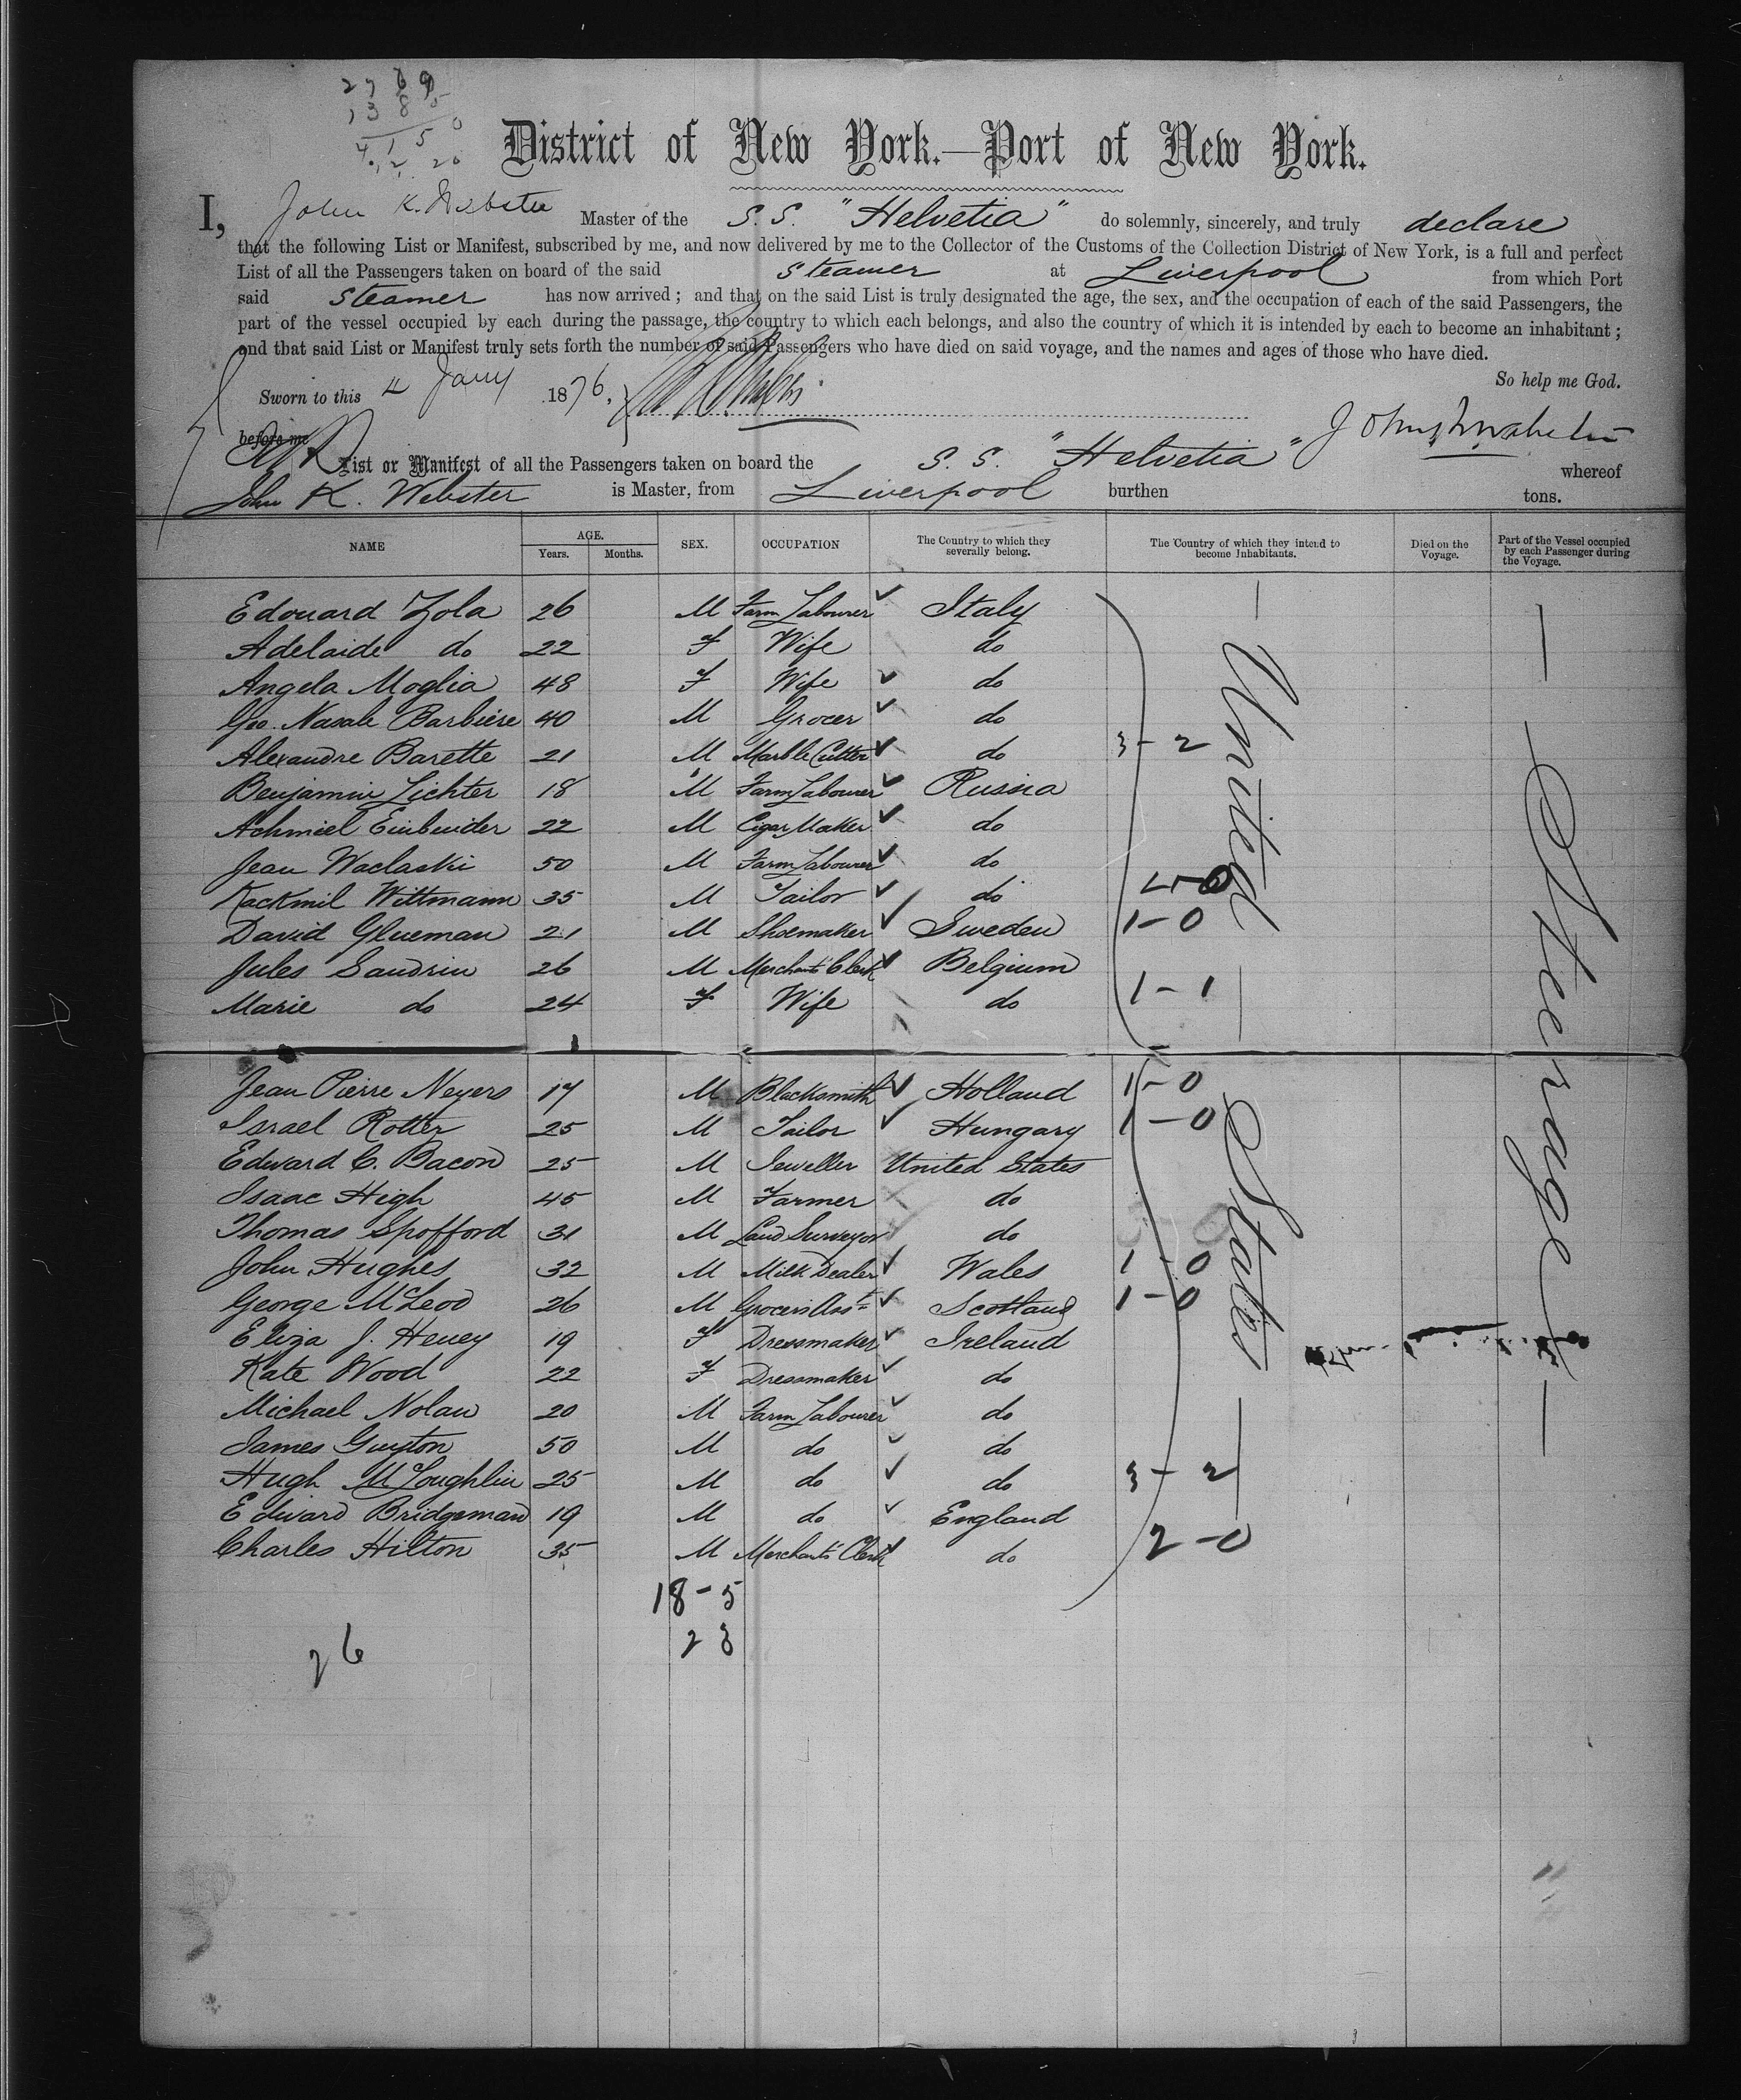 2769
1385
4150
District of New York.—Port of New York.
I, John K. Webster Master of the S. S. "Helvetia" do solemnly, sincerely, and truly declare
that the following List or Manifest, subscribed by me, and now delivered by me to the Collector of the Customs of the Collection District of New York, is a full and perfect
List of all the Passengers taken on board of the said steamer at Liverpool from which Port
said steamer has now arrived; and that on the said List is truly designated the age, the sex, and the occupation of each of the said Passengers, the
part of the vessel occupied by each during the passage, the country to which each belongs, and also the country of which it is intended by each to become an inhabitant;
and that said List or Manifest truly sets forth the number of said Passengers who have died on said voyage, and the names and ages of those who have died.
So help me God.
Sworn to this 4 Jany 1876,
before me
List or Manifest of all the Passengers taken on board the S. S. "Helvetia" whereof
John K. Webster is Master, from Liverpool burthen tons.
NAME AGE. Years. Months. SEX. OCCUPATION The Country to which they severally belong. The Country of which they intend to become Inhabitants. Died on the Voyage. Part of the Vessel occupied by each Passenger during the Voyage.
Edouard Zola 26 M Farm Labourer Italy
Adelaide do 22 F Wife do
Angela Moglia 48 F Wife do
Geo. Nasale Barbiere 40 M Grocer do
Alexandre Barette 21 M Marble Cutter do 3-2
Benjamin Lichter 18 M Farm Labourer Russia
Achmiel Einbinder 22 M Cigar Maker do
Jean Waclaski 50 M Farm Labourer do
Kackmil Wittmann 35 M Tailor do 4-0
David Glueman 21 M Shoemaker Sweden 1-0
Jules Sandrin 26 M Merchants Clerk Belgium
Marie do 24 F Wife do 1-1
Jean Pierre Neyers 17 M Blacksmith Holland 1-0
Israel Rotter 25 M Tailor Hungary 1-0
Edward C. Bacon 25 M Jeweller United States
Isaac High 45 M Farmer do
Thomas Spofford 31 M Land Surveyor do
John Hughes 32 M Milk Dealer Wales 1-0
George McLeod 26 M Grocers Asst Scotland 1-0
Eliza J. Heney 19 F Dressmaker Ireland
Kate Wood 22 F Dressmaker do
Michael Nolan 20 M Farm Labourer do
James Guyton 50 M do do
Hugh McLoughlin 25 M do do 3-2
Edward Bridgeman 19 M do England
Charles Hilton 35 M Merchants Clerk do 2-0
United States
Steerage
18-5
23
26